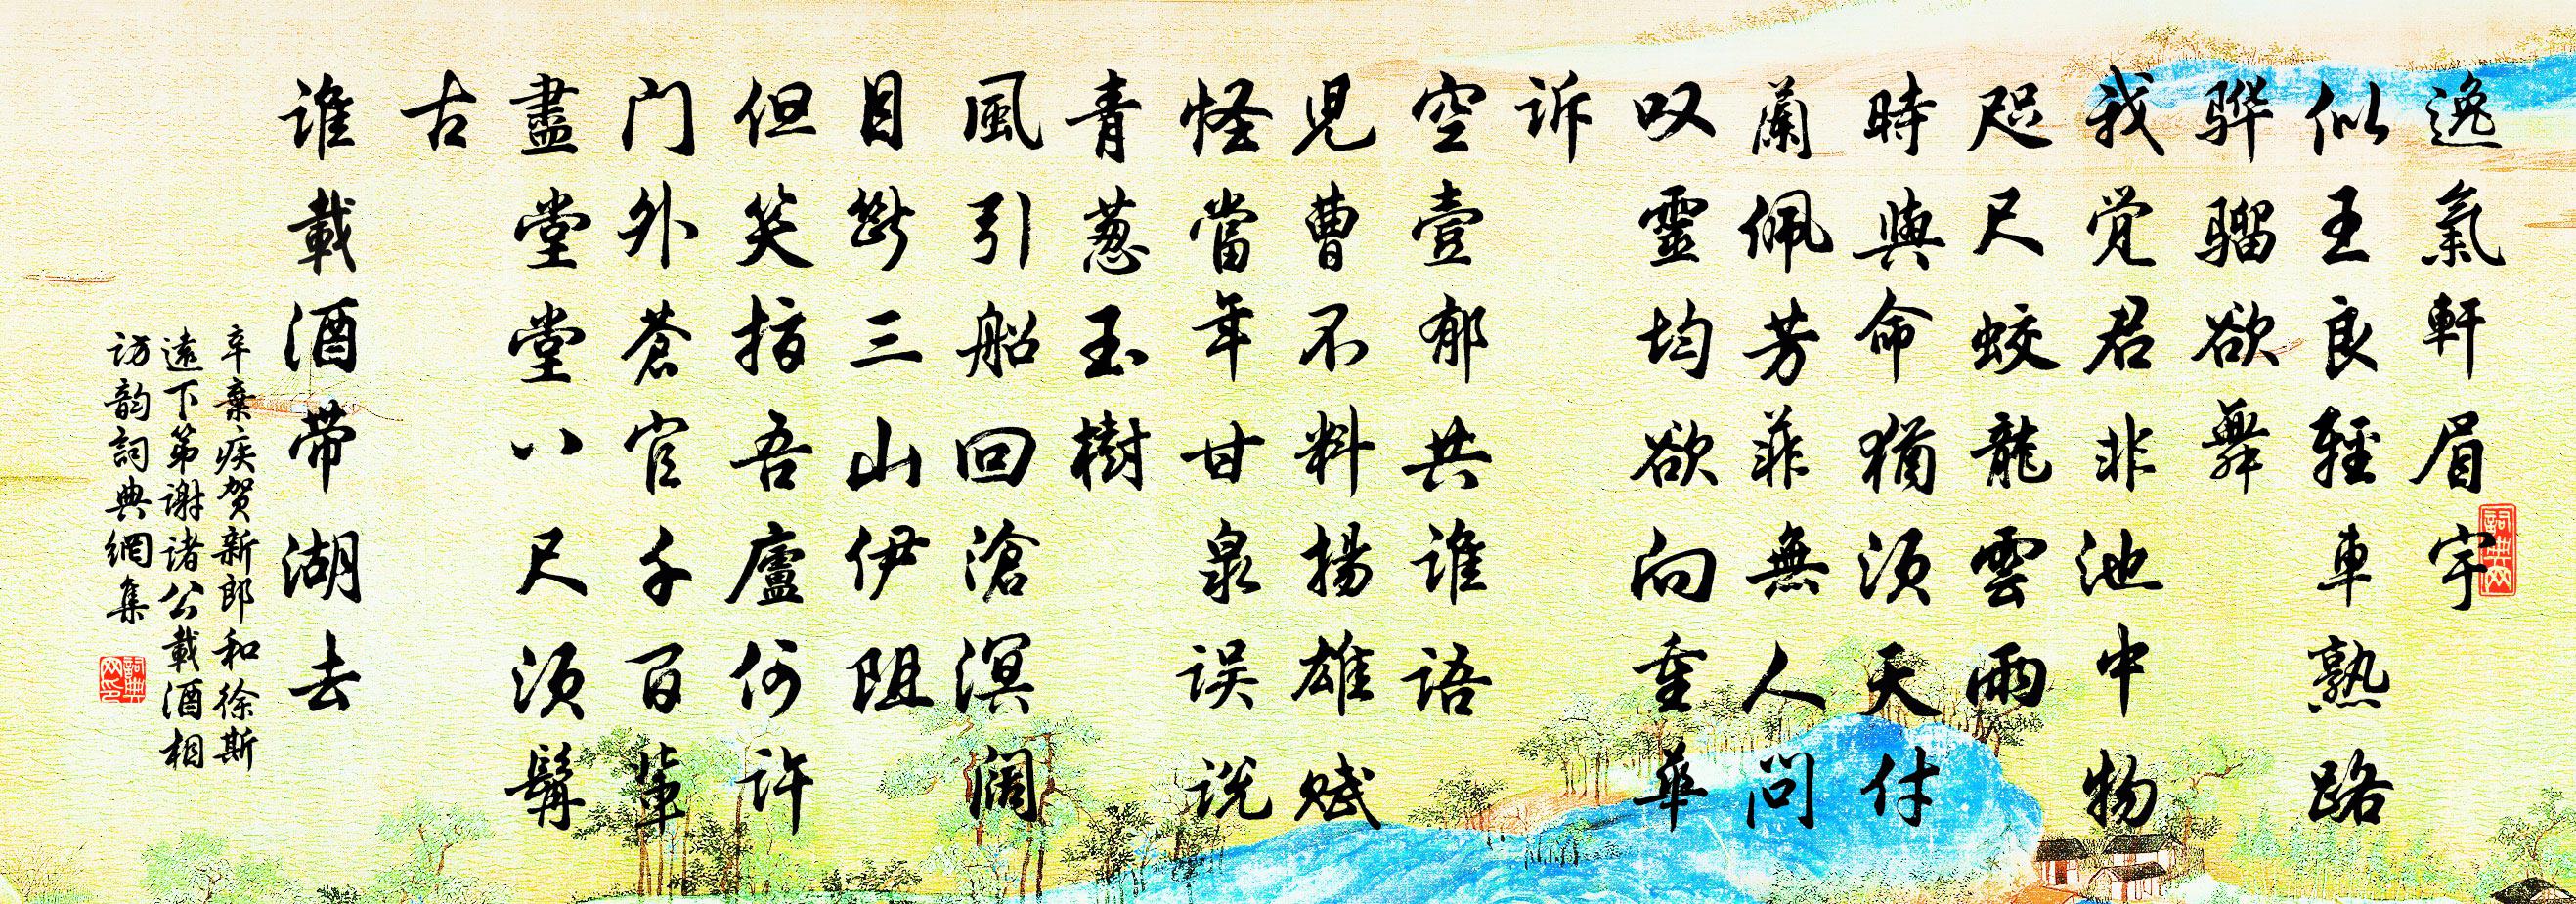 逸氣軒眉宇
似王良輕車熟路
骅骝欲舞
我觉君非池中物
咫尺蛟龍雲雨
時與命猶须天付
蘭佩芳菲無人問
叹靈均欲向重華
诉
空壹郁共谁語
児曹不料揚雄赋
怪當年甘泉误说
青葱玉樹
風引船回滄溟阔
目斷三山伊阻
但笑指吾廬何许
门外蒼官千百輩
盡堂堂八尺须髯
古
谁載酒带湖去
辛棄疾贺新郎和徐斯
遠下第谢诸公載酒相
访韵詞典網集
詞典网
詞典网印